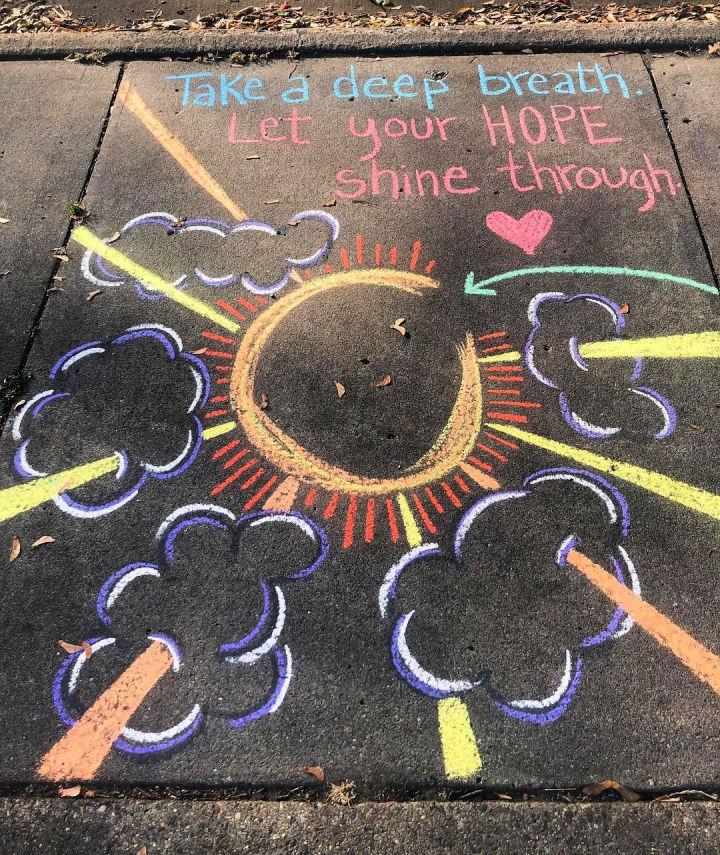 Take a deep breath.
Let your HOPE
shine through.